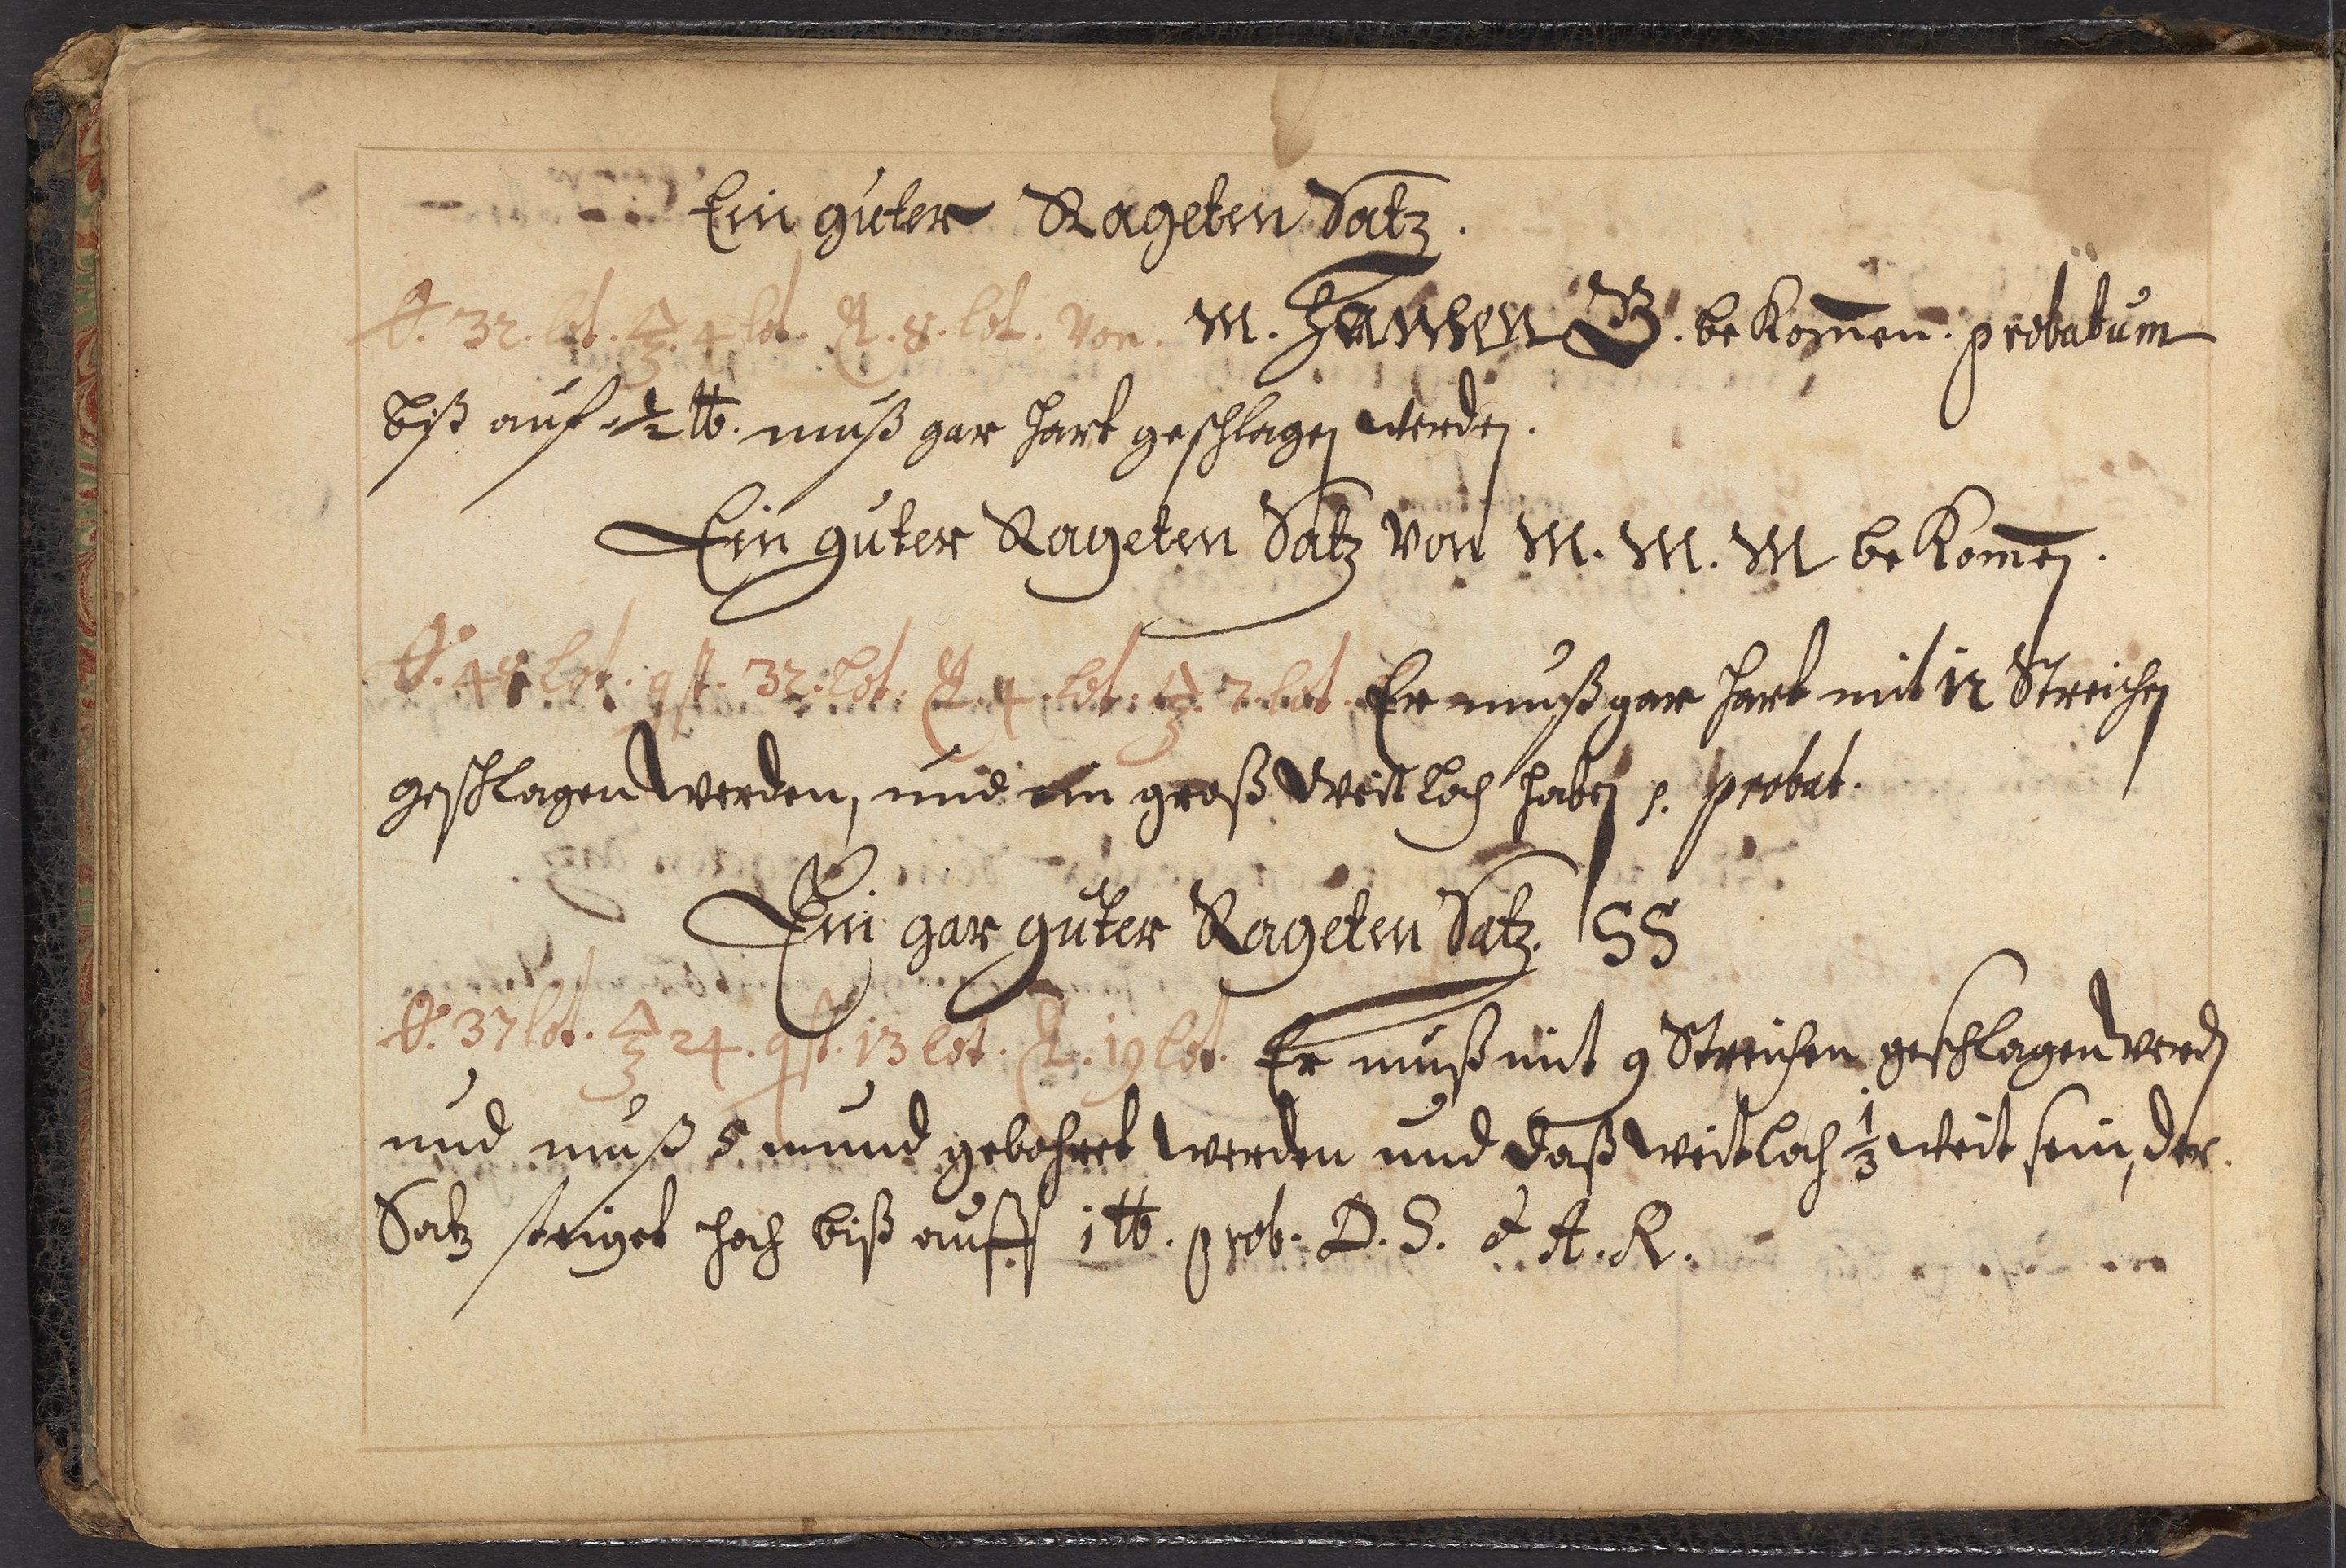 Ein guter Rageten Satz.
32. lot. 4 lot. 8. lot. Von. M. Hansen B. bekom̅en. probatum
biß auf ½ ℔. muß gar hart geschlagen werden.
Ein guter Rageten Satz Von M. M. M bekom̅en.
48 lot. 32. lot. 4. lot. 2 lot. Er muß gar hart mit 12 Streichen
geschlagen werden, und ein groß Weitloch haben probat.
Ein gar guter Rageten Satz. SS
37 lot. 24. 13 lot. 19 lot. Er muß mit 9 Streichen geschlagen werden
und muß 5 mund gebohret werden und daß Weitloch 1/3 weit sein, der
Satz steiget hoch biß auff 1 ℔. prob. D. S. & A. R.